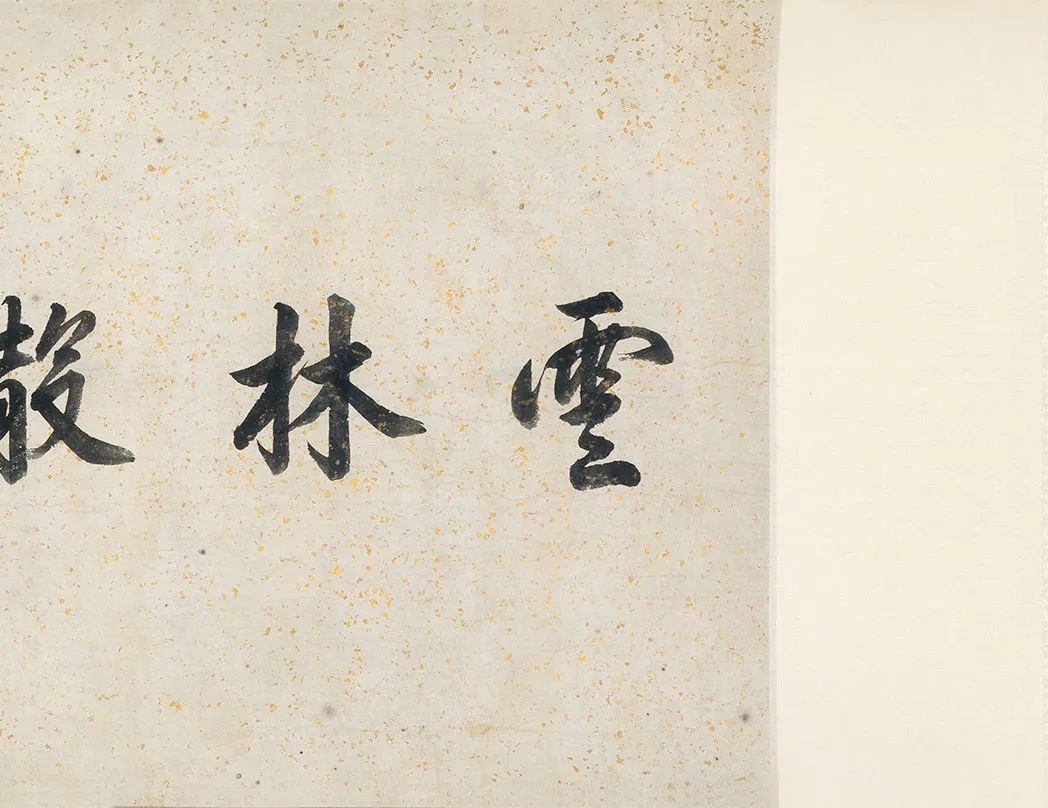 雲林散